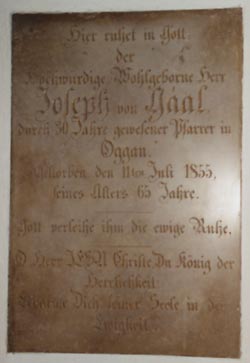 Hier ruhet in Gott
der
Hochwürdige Wohlgeborne Herr
Joseph von Gáál,
durch 30 Jahre gewesener Pfarrer in
Oggau.
Gestorben den 11ten Juli 1855,
seines Alters 65 Jahre.
Gott verleihe ihm die ewige Ruhe.
O Herr JESU Christe Du König der
Herrlichkeit
Dich seiner Seele in der
Ewigkeit.